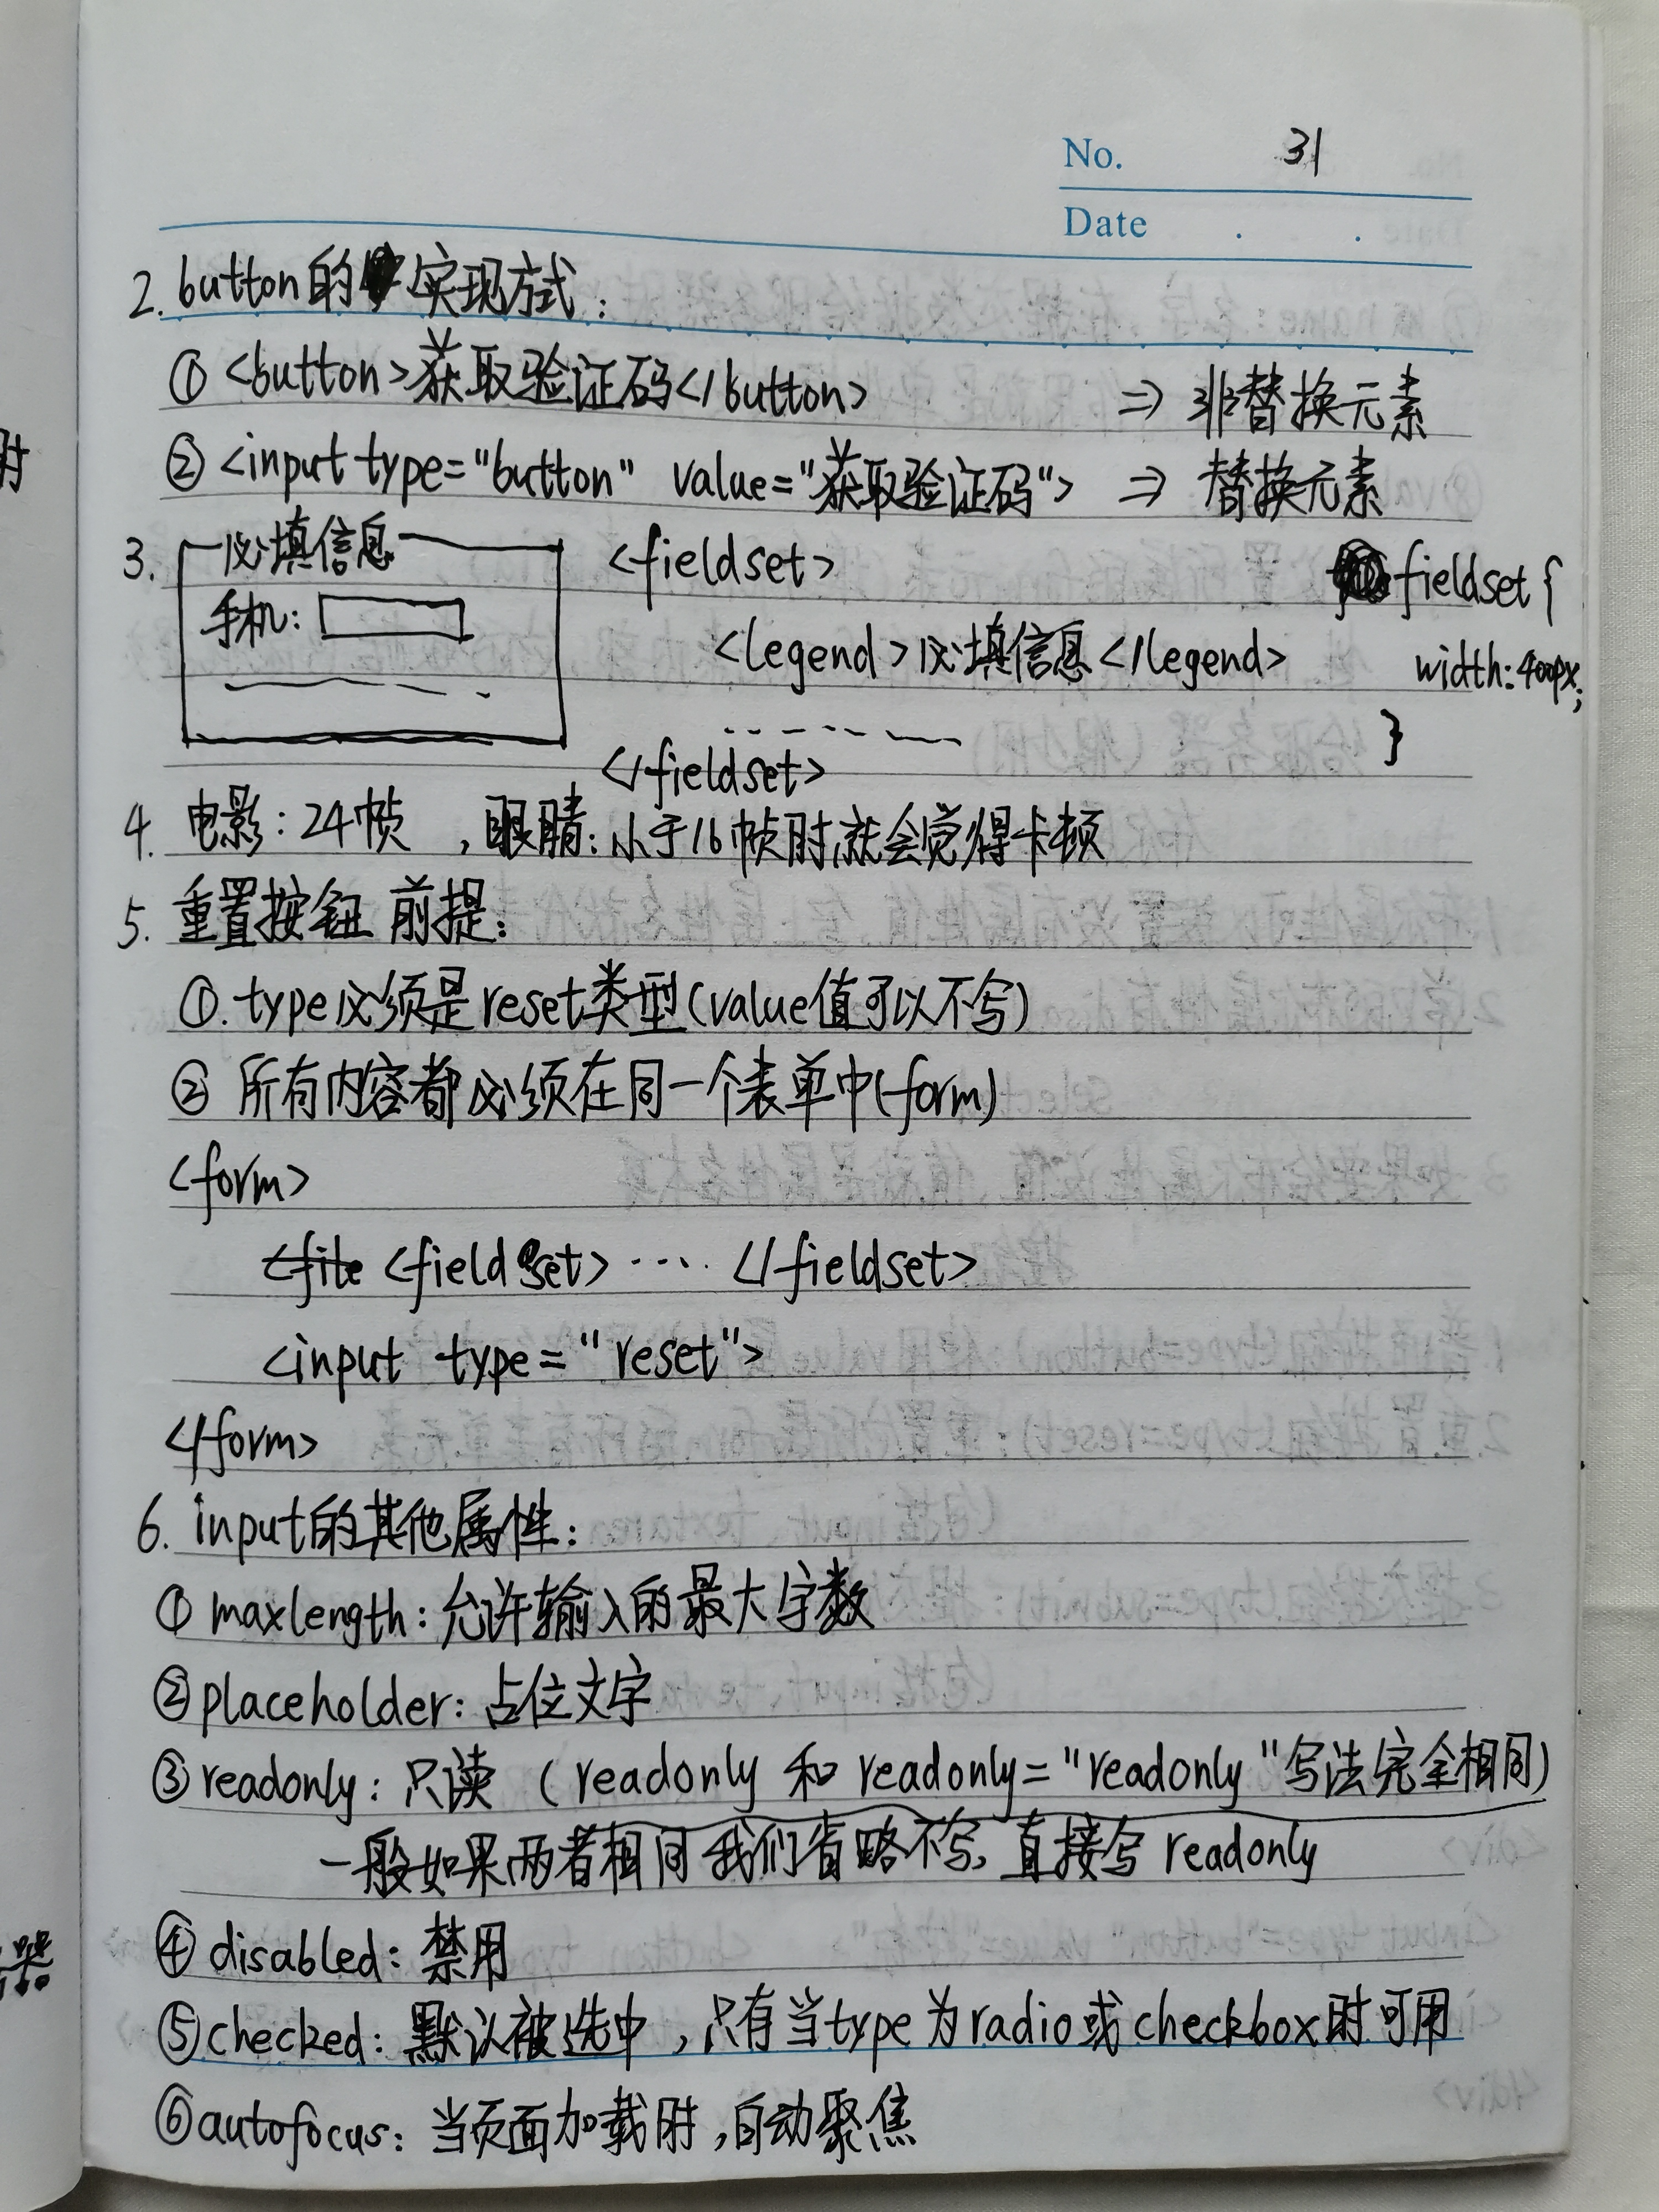 No. 31
Date . .
2. button的实现方式:
① <button>获取验证码</button> ⇒ 非替换元素
② <input type="button" value="获取验证码"> ⇒ 替换元素
3. 必填信息
手机:
<fieldset>
<legend>必填信息</legend>
</fieldset>
fieldset {
width:400px;
}
4. 电影: 24帧 , 眼睛: 小于16帧时就会觉得卡顿
5. 重置按钮 前提:
①. type必须是reset类型(value值可以不写)
② 所有内容都必须在同一个表单中(form)
<form>
<file <fieldset> .... </fieldset>
<input type="reset">
</form>
6. input的其他属性:
① maxlength: 允许输入的最大字数
② placeholder: 占位文字
③ readonly: 只读 (readonly 和 readonly="readonly"写法完全相同)
一般如果两者相同我们省略不写, 直接写 readonly
④ disabled: 禁用
⑤ checked: 默认被选中, 只有当type为radio或checkbox时可用
⑥ autofocus: 当页面加载时, 自动聚焦
时
器